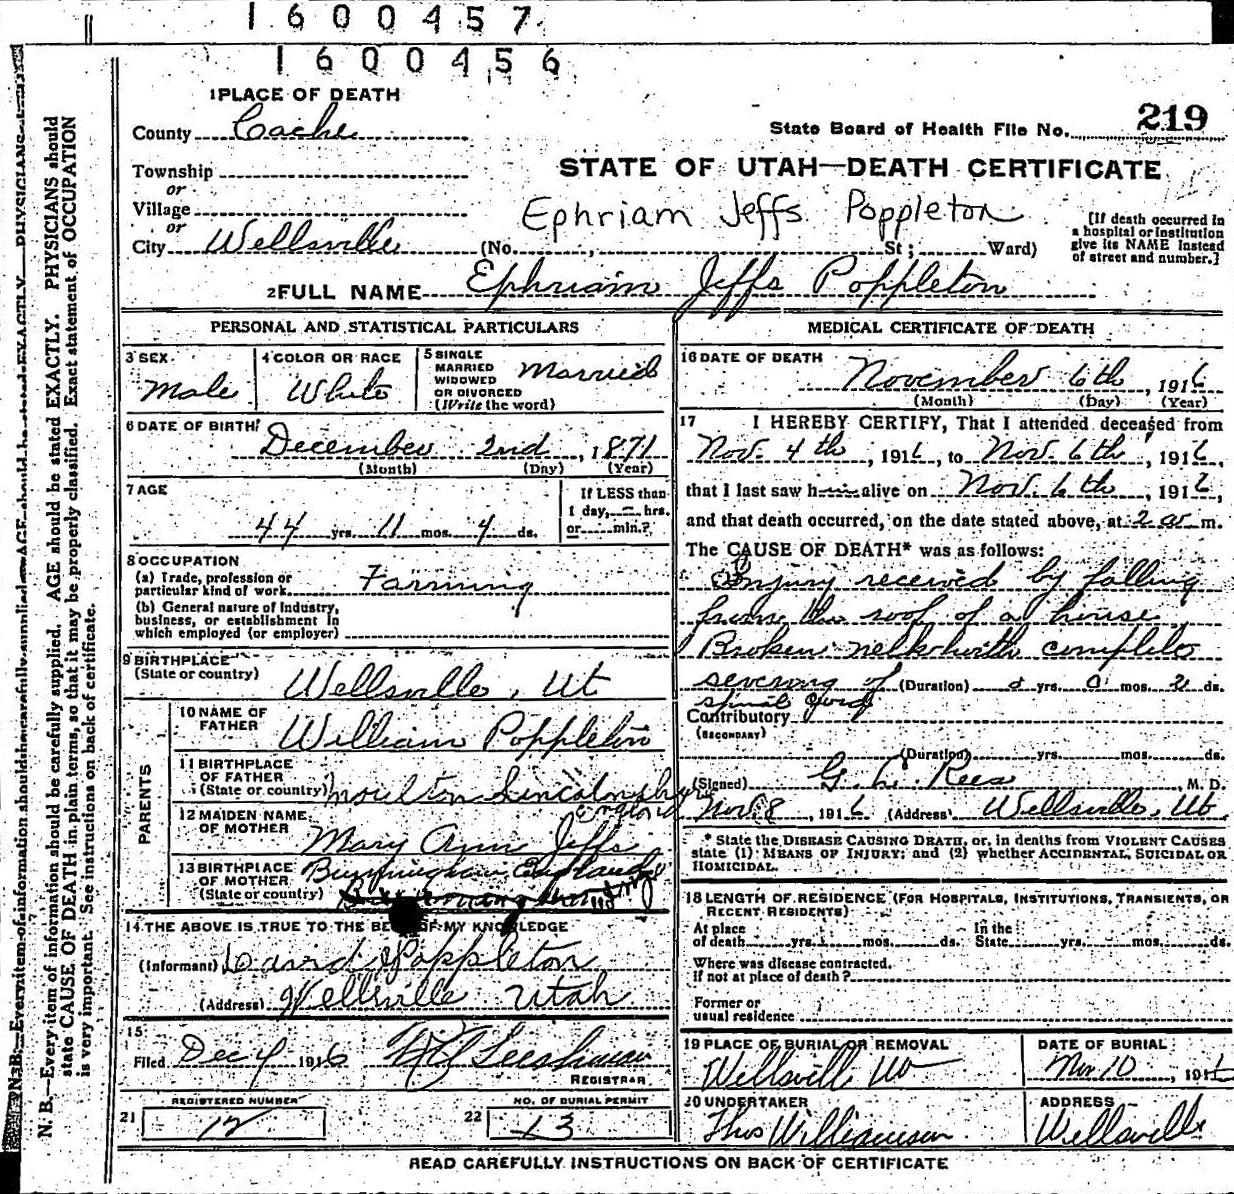 1600457
1600456
1 PLACE OF DEATH
County Cache
State Board of Health File No. 219
Township
or
Village
or
City Wellsville
STATE OF UTAH—DEATH CERTIFICATE
Ephriam Jeffs Poppleton
(No. , St; Ward)
[If death occurred in
a hospital or institution
give its NAME instead
of street and number.]
2 FULL NAME Ephriam Jeffs Poppleton
PERSONAL AND STATISTICAL PARTICULARS
3 SEX Male
4 COLOR OR RACE White
5 SINGLE
MARRIED
WIDOWED
OR DIVORCED
(Write the word)
Married
6 DATE OF BIRTH
December 2nd, 1871
(Month) (Day) (Year)
7 AGE
44 yrs. 11 mos. 4 ds.
If LESS than
1 day, hrs.
or min.?
8 OCCUPATION
(a) Trade, profession or
particular kind of work Farming
(b) General nature of Industry,
business, or establishment in
which employed (or employer)
9 BIRTHPLACE
(State or country) Wellsville, Ut
PARENTS
10 NAME OF
FATHER William Poppleton
11 BIRTHPLACE
OF FATHER
(State or country) Moulton Lincolnshire
England
12 MAIDEN NAME
OF MOTHER Mary Ann Jeffs
13 BIRTHPLACE
OF MOTHER
(State or country)
Birmingham, England
14 THE ABOVE IS TRUE TO THE BEST OF MY KNOWLEDGE
(Informant) David Poppleton
(Address) Wellsville Utah
15
Filed Dec 4 1916
REGISTRAR
REGISTERED NUMBER
21 12
NO. OF BURIAL PERMIT
22 13
MEDICAL CERTIFICATE OF DEATH
16 DATE OF DEATH
November 6th, 1916
(Month) (Day) (Year)
17 I HEREBY CERTIFY, That I attended deceased from
Nov. 4th, 1916, to Nov. 6th, 1916,
that I last saw h alive on Nov. 6th, 1916,
and that death occurred, on the date stated above, at 2 a.m.
The CAUSE OF DEATH* was as follows:
Injury received by falling
from the roof of a house
Broken neck with complete
severing of (Duration) yrs. 0 mos. 2 ds.
spinal cord
Contributory
(SECONDARY)
(Duration) yrs. mos. ds.
(Signed) G. L. Rees M. D.
Nov. 8, 1916 (Address) Wellsville, Ut.
* State the DISEASE CAUSING DEATH, or, in deaths from VIOLENT CAUSES
state (1) MEANS OF INJURY; and (2) whether ACCIDENTAL, SUICIDAL OR
HOMICIDAL.
18 LENGTH OF RESIDENCE (FOR HOSPITALS, INSTITUTIONS, TRANSIENTS, OR
RECENT RESIDENTS)
At place In the
of death yrs. mos. ds. State yrs. mos. ds.
Where was disease contracted.
If not at place of death?
Former or
usual residence
19 PLACE OF BURIAL OR REMOVAL
Wellsville Ut
DATE OF BURIAL
Nov 10, 1916
20 UNDERTAKER
Thos Williamson
ADDRESS
Wellsville
READ CAREFULLY INSTRUCTIONS ON BACK OF CERTIFICATE
N. B.—Every item of information should be carefully supplied. AGE should be stated EXACTLY. PHYSICIANS should
state CAUSE OF DEATH in plain terms, so that it may be properly classified. Exact statement of OCCUPATION
is very important. See instructions on back of certificate.
N. B.—Every item of information should be carefully supplied. AGE should be stated EXACTLY. PHYSICIANS